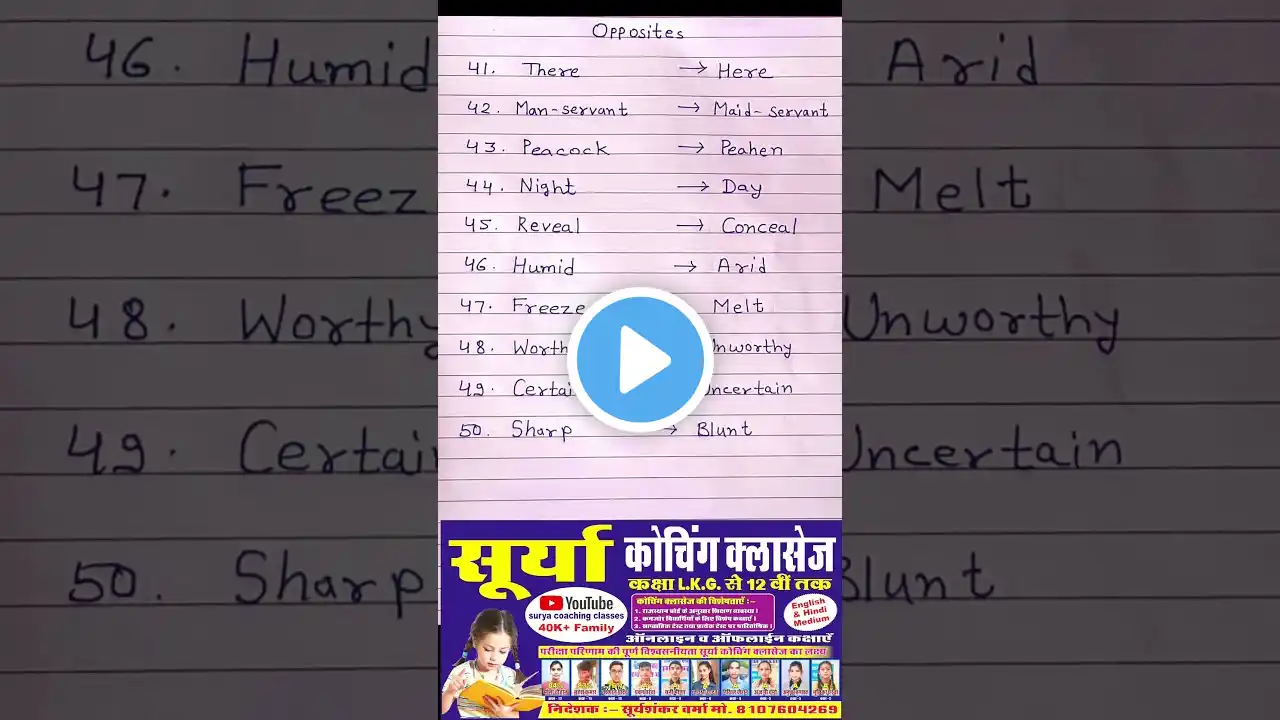 Opposites
41. There → Here
42. Man-servant → Maid-servant
43. Peacock → Peahen
44. Night → Day
45. Reveal → Conceal
46. Humid → Arid
47. Freeze Melt
48. Worth Unworthy
49. Certai Uncertain
50. Sharp → Blunt
46. Humid Arid
47. Freez Melt
48. Worthy Unworthy
49. Certai Uncertain
50. Sharp Blunt
सूर्या कोचिंग क्लासेज
कक्षा L.K.G. से 12 वीं तक
YouTube
surya coaching classes
40K+ Family
कोचिंग क्लासेज की विशेषताएँ :-
1. राजस्थान बोर्ड के अनुसार शिक्षण व्यवस्था ।
2. कमजोर विद्यार्थियों के लिए विशेष कक्षाएं ।
3. साप्ताहिक टेस्ट तथा प्रत्येक टेस्ट पर पारितोषिक ।
English
& Hindi
Medium
ऑनलाइन व ऑफलाईन कक्षाएँ
परीक्षा परिणाम की पूर्ण विश्वसनीयता सूर्या कोचिंग क्लासेज का लक्ष्य
निदेशक :- सूर्यशंकर वर्मा मो. 8107604269